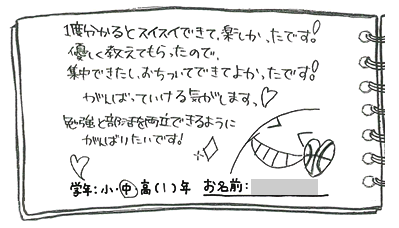 1度分かるとスイスイできて、楽しかったです!
優しく教えてもらったので、
集中できたし、おちついてできてよかったです!
がんばっていける気がします。
勉強と部活を両立できるように
がんばりたいです!
学年:小・中・高(1)年 お名前: